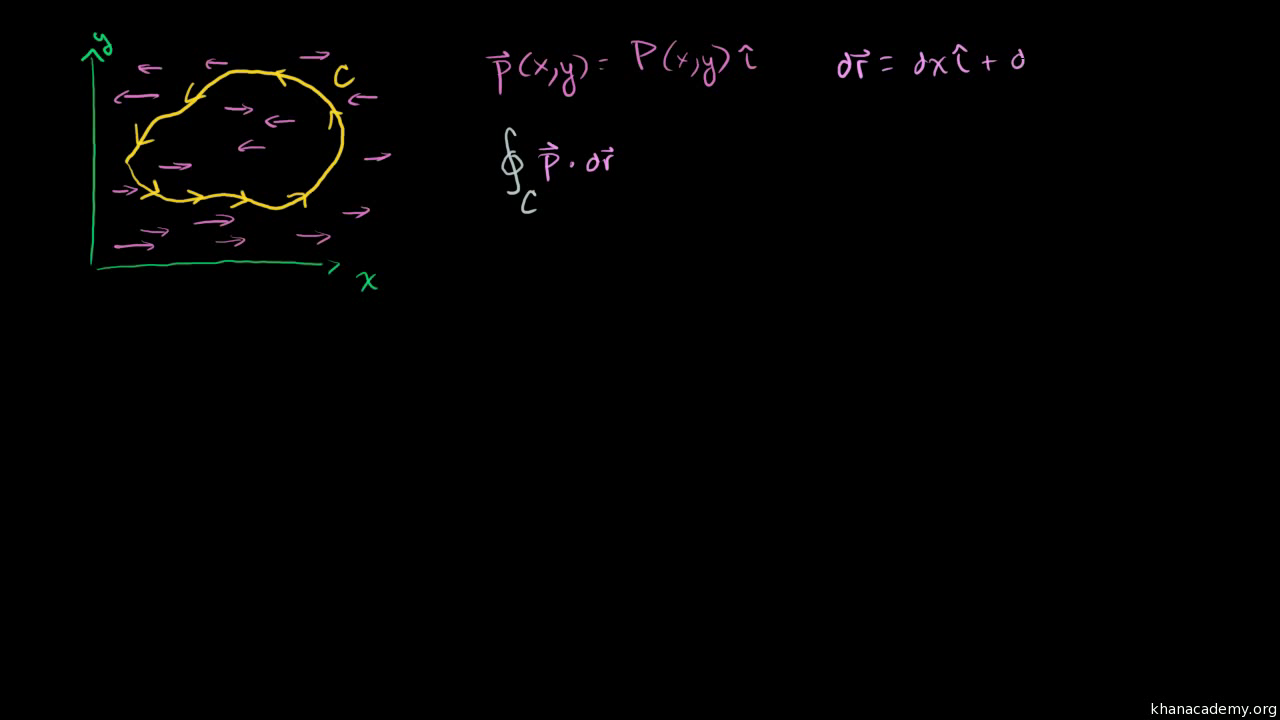 y
C
x
p⃗(x,y) = P(x,y) î
dr⃗ = dx î + d
∮
C
p⃗ · dr⃗
khanacademy.org